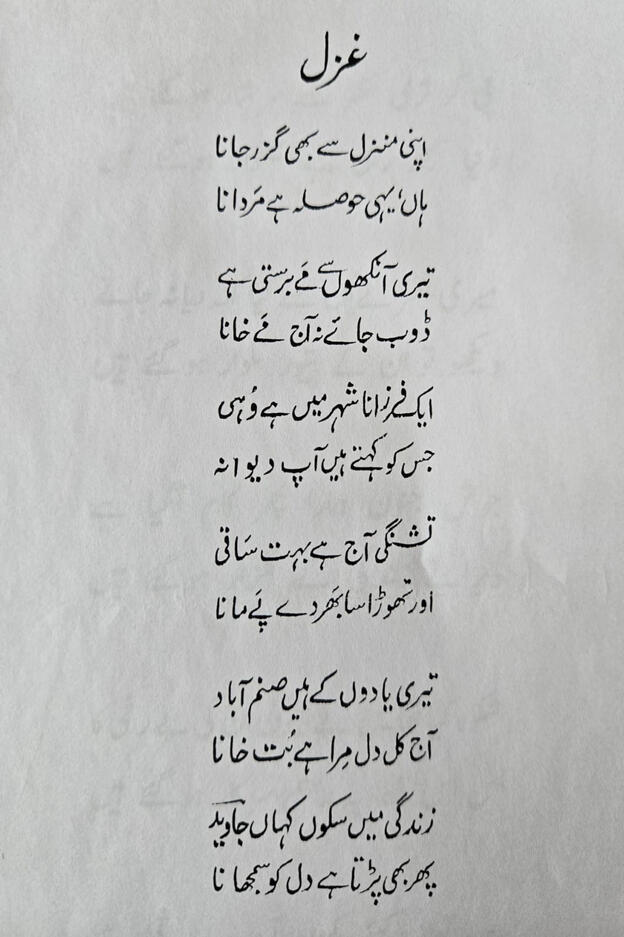 غزل
اپنی منزل سے بھی گزر جانا
ہاں، یہی حوصلہ ہے مَردانا
تیری آنکھوں سے مَے برستی ہے
ڈوب جائے نہ آج مَے خانا
ایک فرزانا شہر میں ہے وُہی
جس کو کہتے ہیں آپ دیوانہ
تشنگی آج ہے بہت ساقی
اور تھوڑا سا بھَر دے پَے مانا
تیری یادوں کے ہیں صنم آباد
آج کل دل مِرا ہے بُت خانا
زندگی میں سکوں کہاں جاوید
پھر بھی پڑتا ہے دل کو سمجھانا